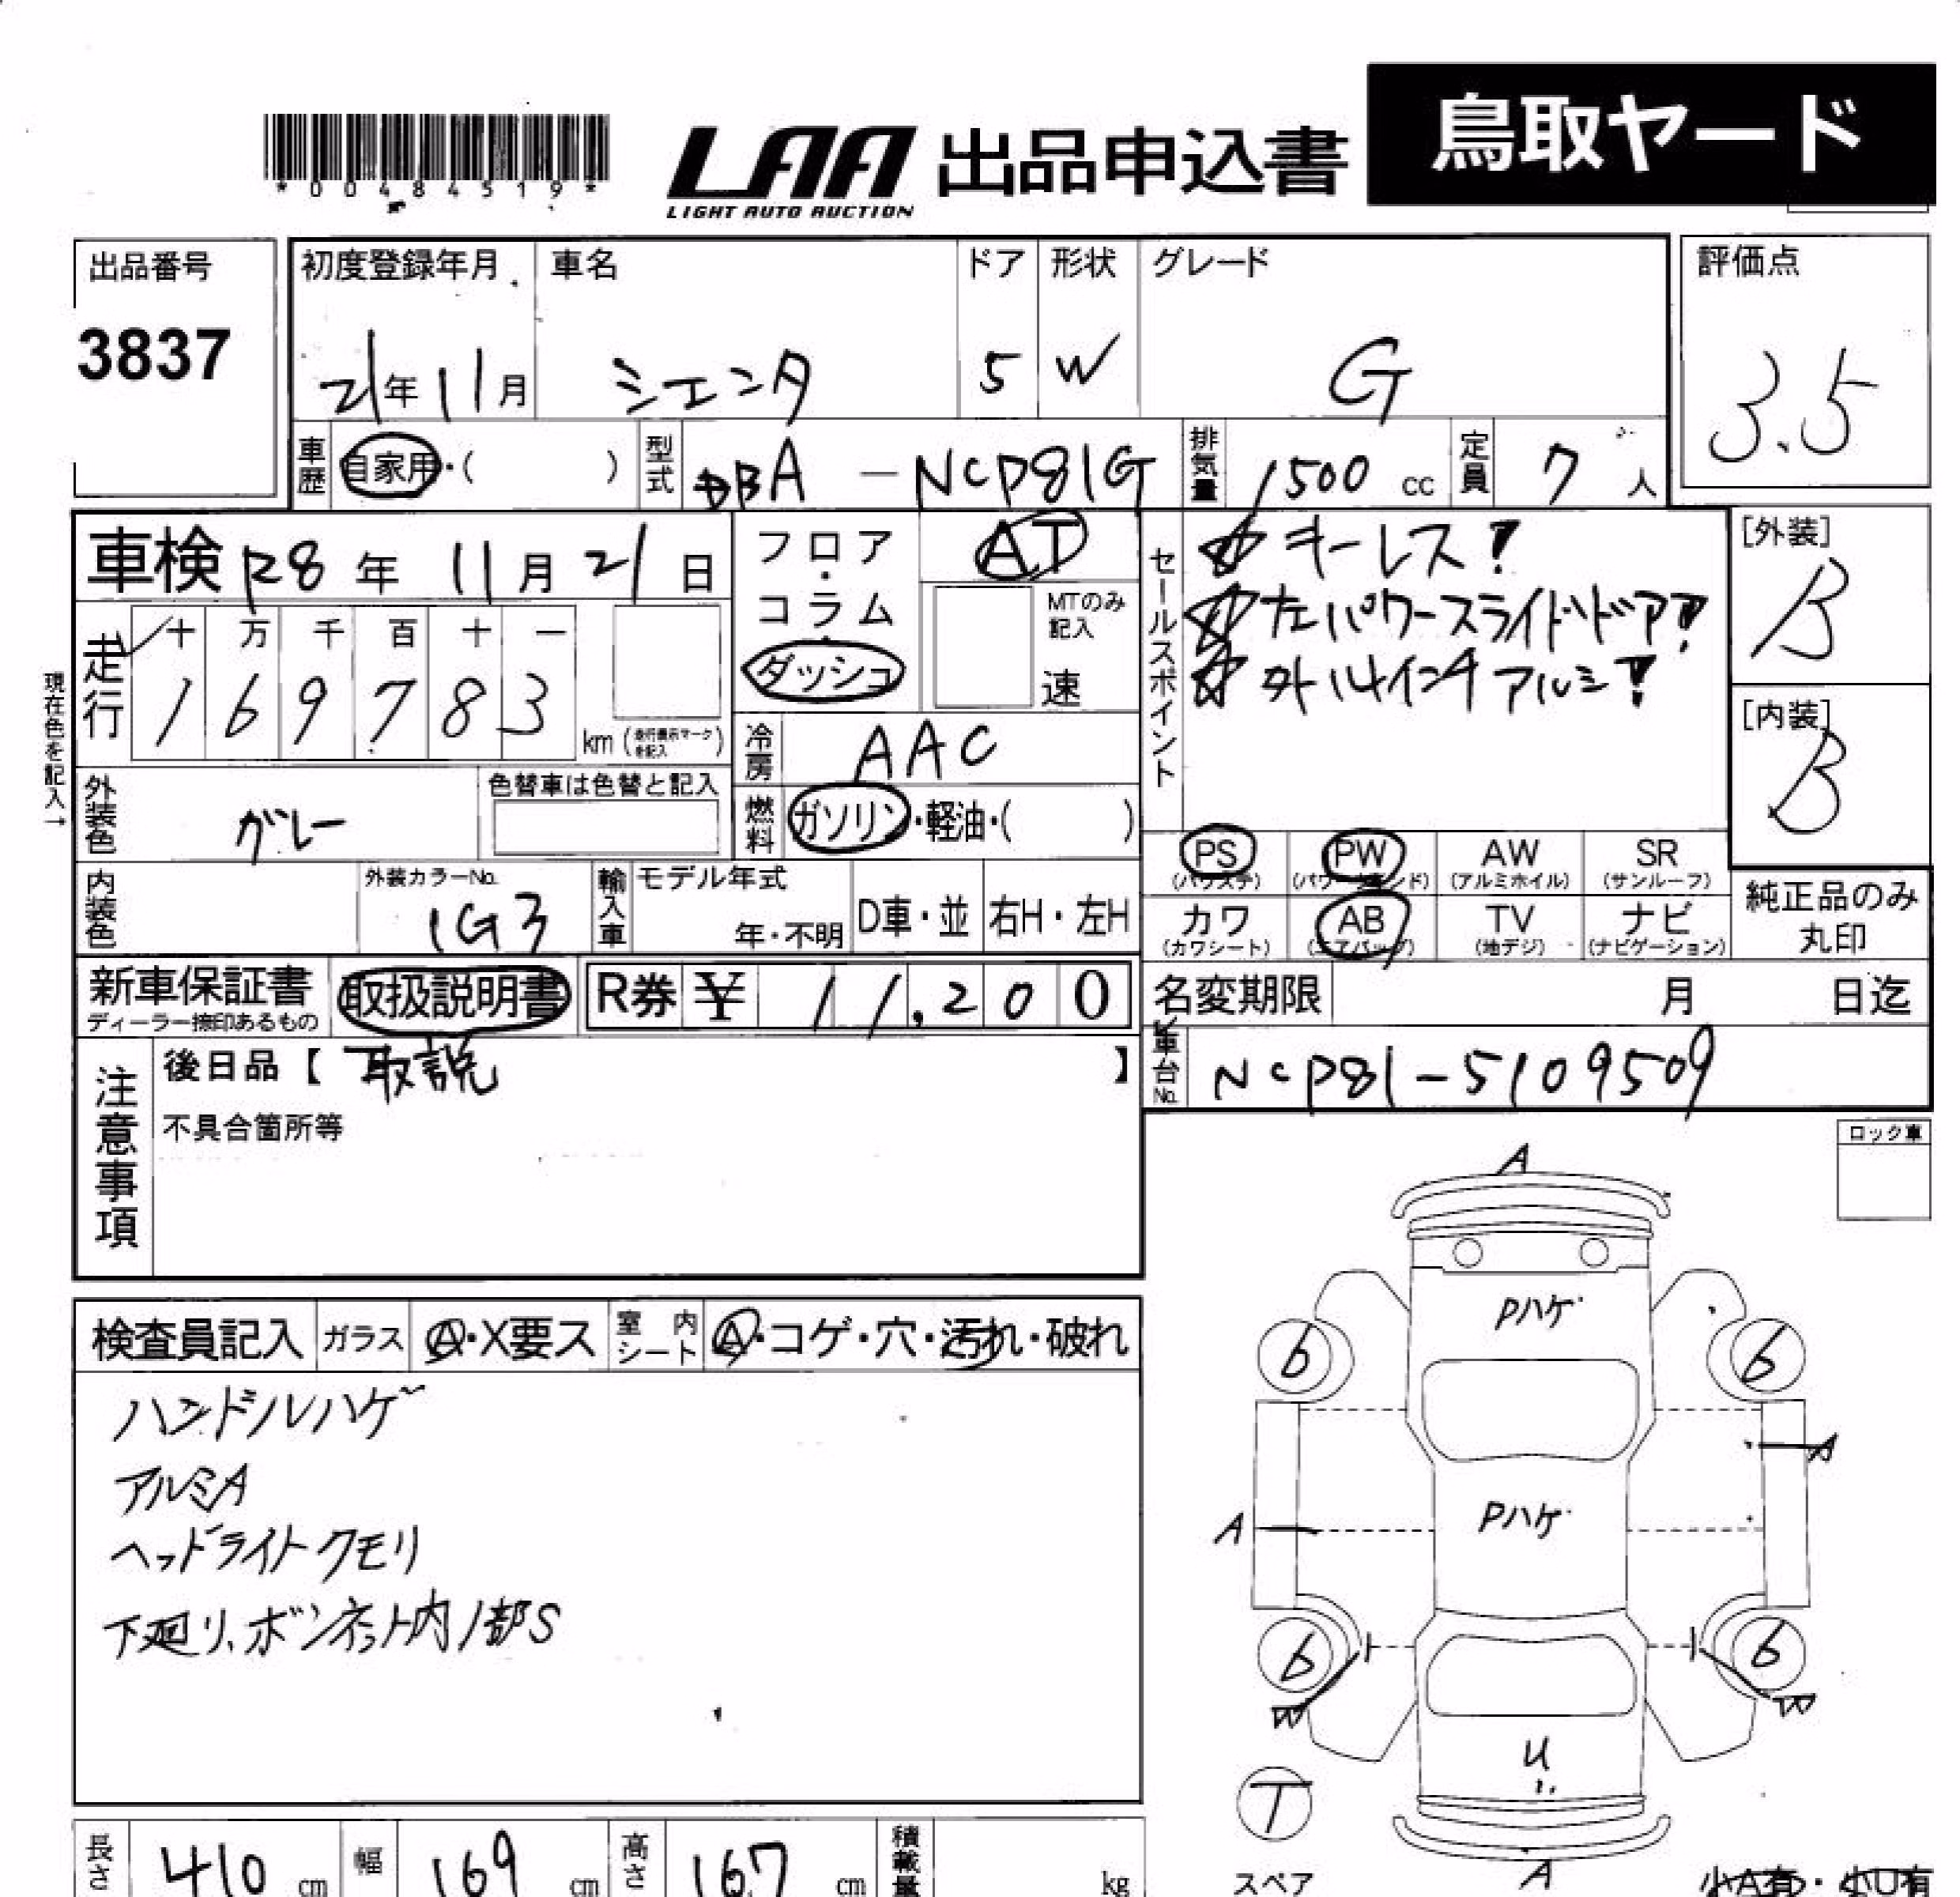 *00484519*
LAA 出品申込書 鳥取ヤード
LIGHT AUTO AUCTION
出品番号 初度登録年月 車名 ドア 形状 グレード 評価点
3837 21年11月 シエンタ 5 W G 3.5
車歴 自家用・( ) 型式 DBA-NCP81G 排気量 1500 cc 定員 7人
車検 R8年 11月 21日 フロア・コラム・ダッシュ AT
MTのみ記入 速
セールスポイント
キーレス!
左パワースライドドア!
外14インチアルミ!
[外装] B
[内装] B
現在色を記入→
走行 十 万 千 百 十 一
1 6 9 7 8 3 km (走行表示マークを記入)
冷房 AAC
外装色 グレー 色替車は色替と記入 燃料 ガソリン・軽油・( )
PS AW SR PW
(パワステ) (パワーウインド) (アルミホイル) (サンルーフ)
内装色 外装カラーNo. 1G3 輸入車 モデル年式 年・不明 D車・並 右H・左H
カワ AB TV ナビ
(カワシート) (エアバッグ) (地デジ) (ナビゲーション)
純正品のみ丸印
新車保証書 取扱説明書 R券 ¥ 11,200
ディーラー捺印あるもの
名変期限 月 日迄
車台No. NCP81-5109509
注意事項 後日品【 取説 】
不具合箇所等
ロック車
検査員記入 ガラス A・X要ス 室内シート A・コゲ・穴・汚れ・破れ
ハンドルハゲ
アルミA
ヘッドライトクモリ
下廻り、ボンネット内ノ部S
A
Pハゲ
6 6
A
Pハゲ
A
6 6
W W
U
T
スペア
A
小A有・小U有
長さ 410 cm 幅 169 cm 高さ 167 cm 積載量 kg